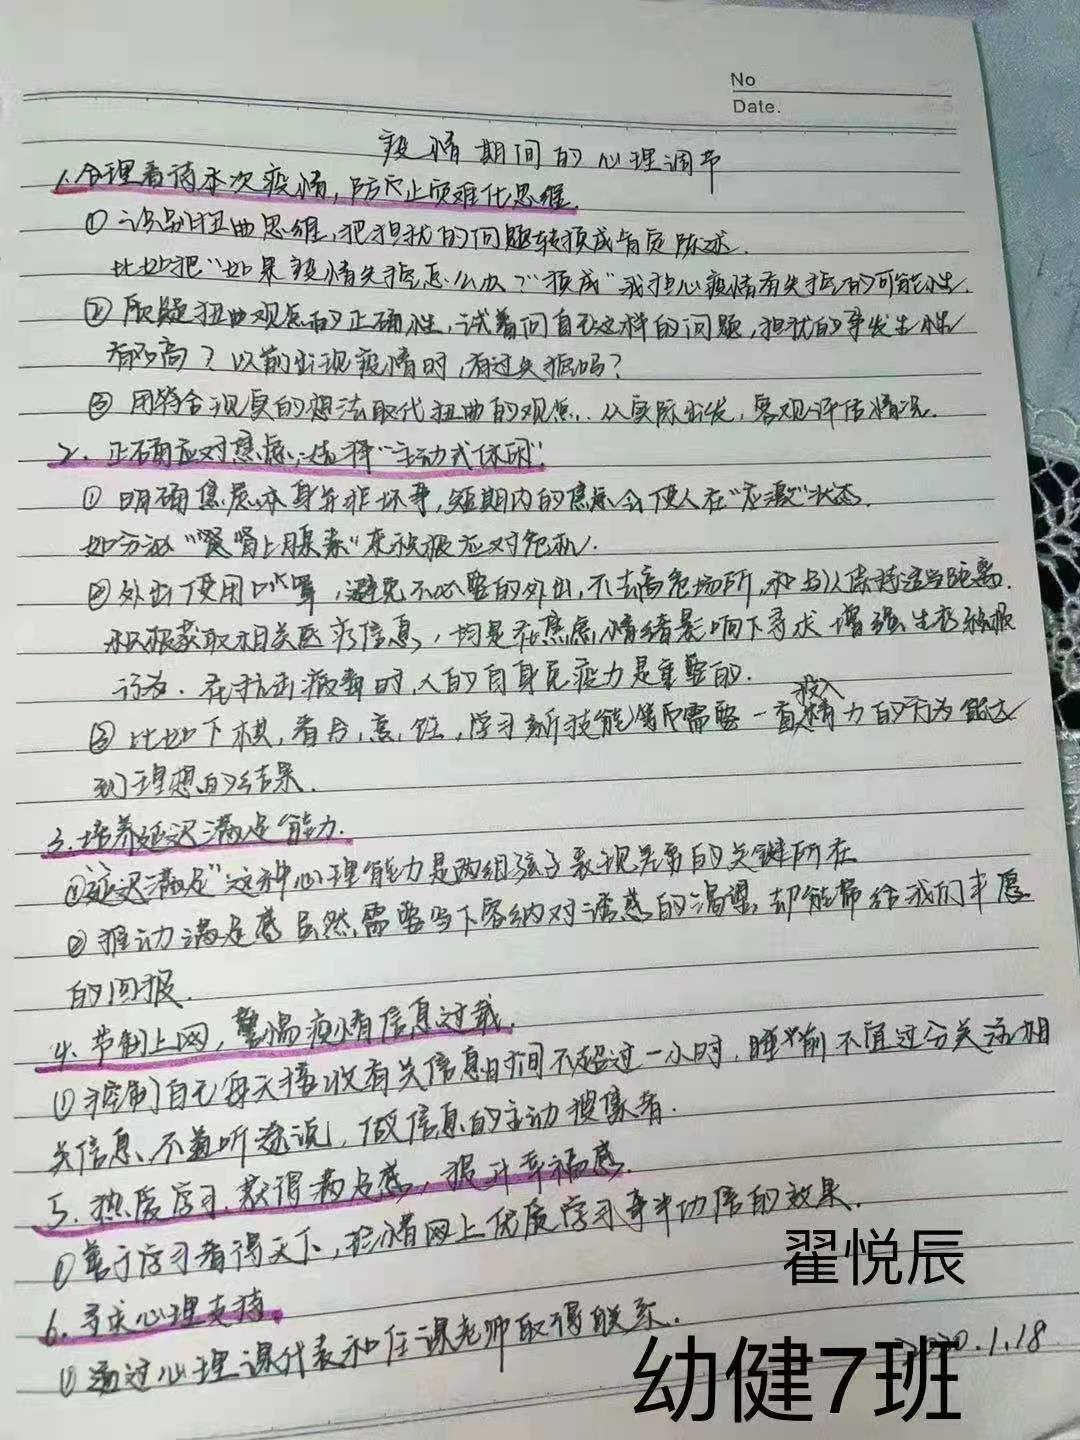 No
Date.
疫情期间的心理调节
1.合理看待本次疫情,防止灾难化思维.
① 识别扭曲思维,把担忧的问题转换成肯定陈述.
比如把"如果疫情失控怎么办?"换成"我担心疫情有失控的可能性.
② 质疑扭曲观点的正确性,试着问自己这样的问题,担忧的事发生性
有多高?以前出现疫情时,有过失控吗?
③ 用符合现实的想法取代扭曲的观点.从实际出发,客观评估情况.
2.正确应对焦虑,选择"主动式休闲".
① 明确焦虑本身并非坏事,短期内的焦虑会使人在"应激"状态.
如分泌"肾上腺素"来积极应对危机.
② 外出使用口罩,避免不必要的外出,不去高危场所,和与人保持适当距离.
积极获取相关医疗信息,均是在焦虑情绪影响下寻求增强生存积极
行为.在抗击病毒时,人的自身免疫力是重要的.
③ 比如下棋,看书,烹饪,学习新技能等需要一直投入精力的行为能达
到理想的结果.
3.培养延迟满足能力.
①"延迟满足"这种心理能力是两组孩子表现差异的关键所在
② 推动满足感虽然需要当下容纳对诱惑的渴望,却能带给我们丰厚
的回报.
4.节制上网,警惕疫情信息过载.
① 控制自己每天接收有关信息时间不超过一小时,睡前不宜过分关注相
关信息、不道听途说,做信息的主动搜索者.
5.热爱学习,获得满足感,提升幸福感.
① 善于学习者得天下,疫情网上优质学习事半功倍的效果.
6.寻求心理支持。
① 通过心理课代表和任课老师取得联系.
2020.1.18
翟悦辰
幼健7班